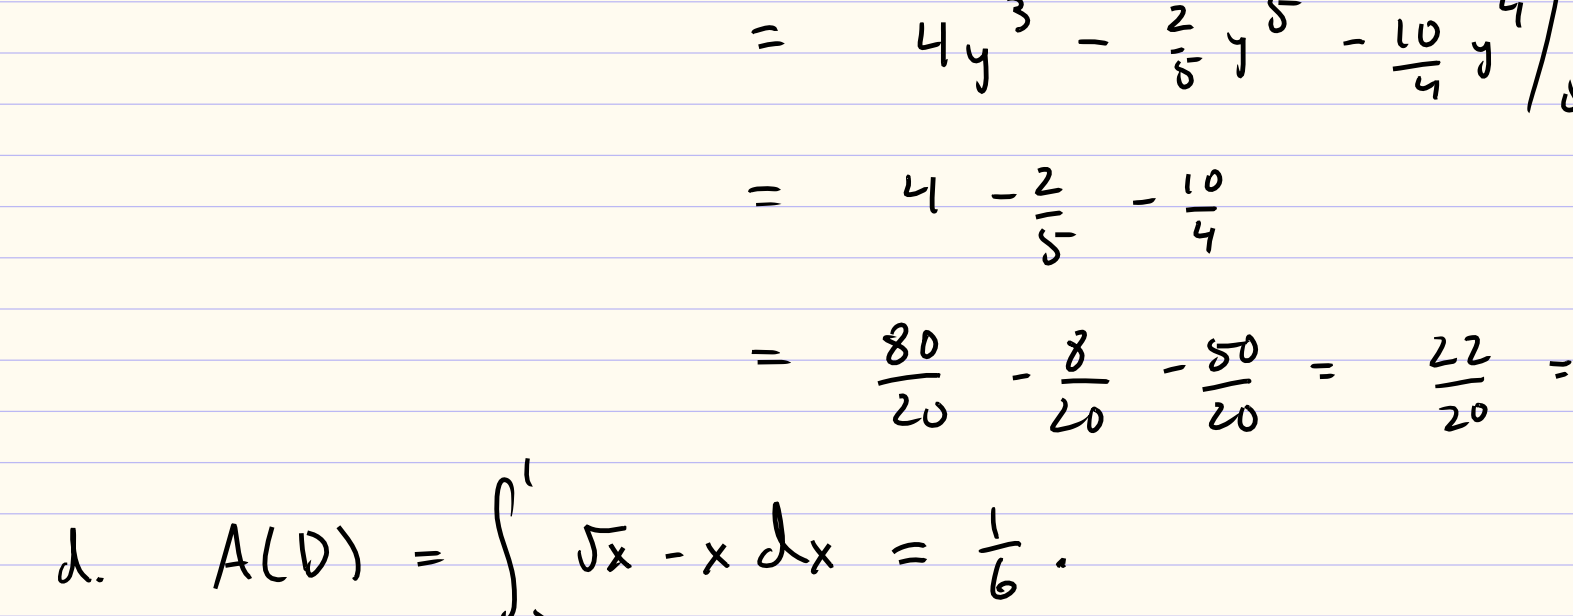 = 4y³ - 2/5 y⁵ - 10/4 y⁴ /
= 4 - 2/5 - 10/4
= 80/20 - 8/20 - 50/20 = 22/20 =
d. A(D) = ∫¹ √x - x dx = 1/6 .